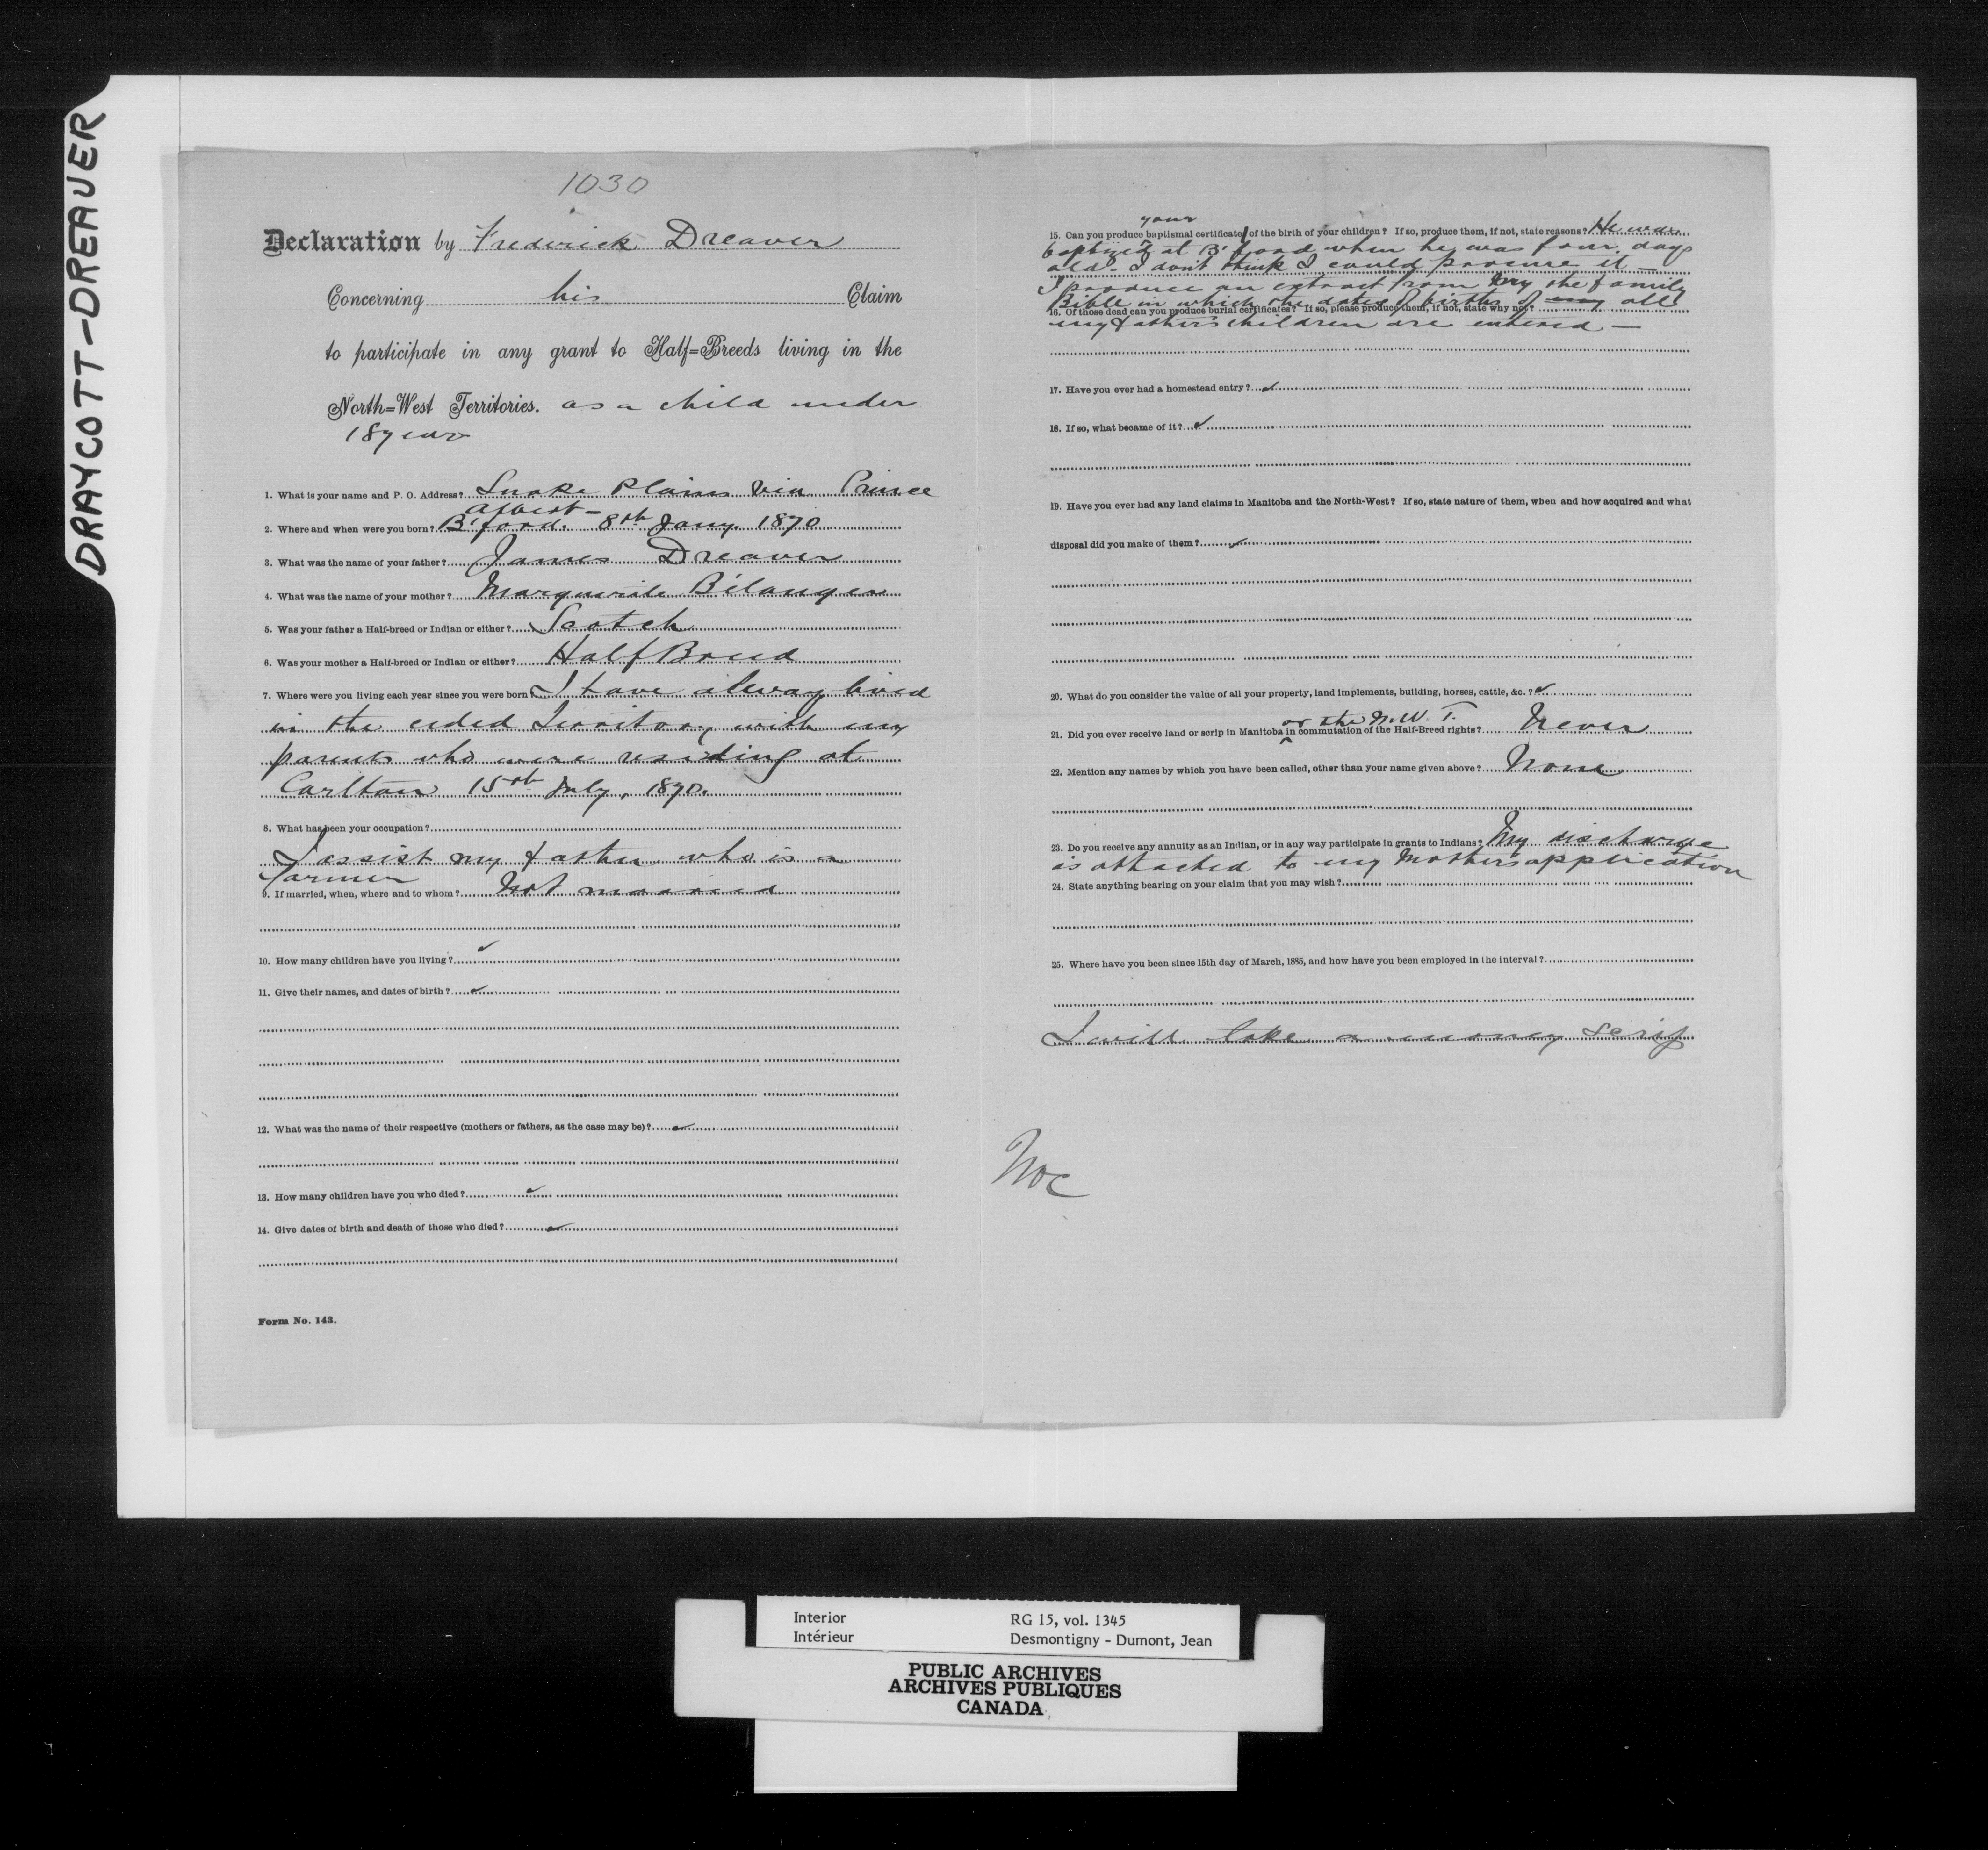 DRAYCOTT-DREAVER
1030
Declaration by Frederick Dreaver
Concerning his Claim
to participate in any grant to Half-Breeds living in the
North-West Territories. as a child under
18 years
1. What is your name and P. O. Address? Snake Plains via Prince
Albert-
2. Where and when were you born? B'ford. 8th Jany. 1870
3. What was the name of your father? James Dreaver
4. What was the name of your mother? Marguerite Bélanger
5. Was your father a Half-breed or Indian or either? Scotch
6. Was your mother a Half-breed or Indian or either? Half Breed
7. Where were you living each year since you were born I have alway lived
in the ceded Territory with my
parents who were residing at
Carlton 15th July, 1870.
8. What has been your occupation?
I assist my father who is a
farmer
9. If married, when, where and to whom? Not married
10. How many children have you living? ✓
11. Give their names, and dates of birth? ✓
12. What was the name of their respective (mothers or fathers, as the case may be)? ✓
13. How many children have you who died? ✓
14. Give dates of birth and death of those who died? ✓
Form No. 143.
your
15. Can you produce baptismal certificate of the birth of your children? If so, produce them, if not, state reasons? He was
baptized at B'ford when he was four days
old - I don't think I could procure it -
I produce an extract from my the family
Bible in which the dates of births of my all
16. Of those dead can you produce burial certificates? If so, please produce them, if not, state why no?
my father's children are entered -
17. Have you ever had a homestead entry? ✓
18. If so, what became of it? ✓
19. Have you ever had any land claims in Manitoba and the North-West? If so, state nature of them, when and how acquired and what
disposal did you make of them? ✓
20. What do you consider the value of all your property, land implements, building, horses, cattle, &c. ? ✓
or the N.W.T.
21. Did you ever receive land or scrip in Manitoba in commutation of the Half-Breed rights? Never
22. Mention any names by which you have been called, other than your name given above? None
23. Do you receive any annuity as an Indian, or in any way participate in grants to Indians? My discharge
is attached to my Mother's application
24. State anything bearing on your claim that you may wish?
25. Where have you been since 15th day of March, 1885, and how have you been employed in the interval?
I will take a money scrip
Interior RG 15, vol. 1345
Intérieur Desmontigny - Dumont, Jean
PUBLIC ARCHIVES
ARCHIVES PUBLIQUES
CANADA